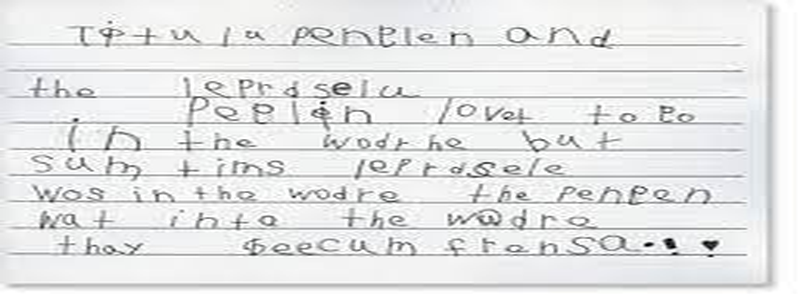 Titula penelen and
the leprdselu
peelen lovet to Eo
in the wodrhe but
sum tims leprdsele
wos in the wodre the penpen
wat inta the wodre
thay beecum frensa.!♥